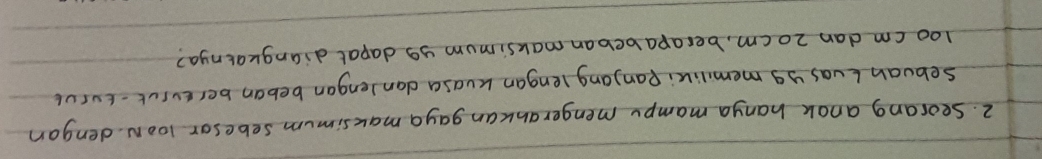 2. Seorang anak hanya mampu mengerahkan gaya maksimum sebesar 100 N. dengan
sebuah tuas yg memiliki Panjang lengan kuasa dan lengan beban berturut-turut
100 cm dan 20 cm, berapa beban maksimum yg dapat diangkatnya?